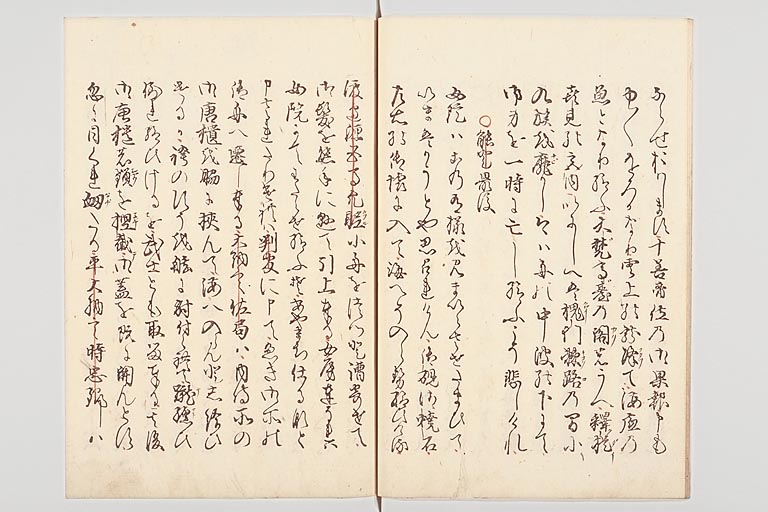 ならせおはします十善帝位の御果報申も
中〱おろかなり雲上の龍降て海底の
魚となり給ふ大梵高臺の閣のうへ釋提
喜見の宮の内いにしへは槐門棘路の間に
九族を靡かし今は舟の中波の下にて
御身を一時に亡し給ふこそ悲しけれ
○能登殿最後
女院はこの有様を見まいらせさせたまひて
いまはかうとや思召れけん御硯御燒石
左右の御懐に入て海へ
渡邊源五馬允眤小舟をつつと漕寄せて
御髪を熊手に懸て引上奉る女房達
女院にてわたらせ給ふそあやまち仕るなと
申されたりけれは判官に申ていそき御所の
御舟へ遷し奉る大納言佐局は内侍所の
御唐櫃を脇に挟んて海へ入らんとし給ひ
けるか袴のすそを舷に射付られて蹴纏ひ
倒れ給ひけるを武士とも取留奉る其後
御唐櫃の鎖を捻截御蓋を既に開んとす
忽に目くれ衄たる平大納言時忠卿は